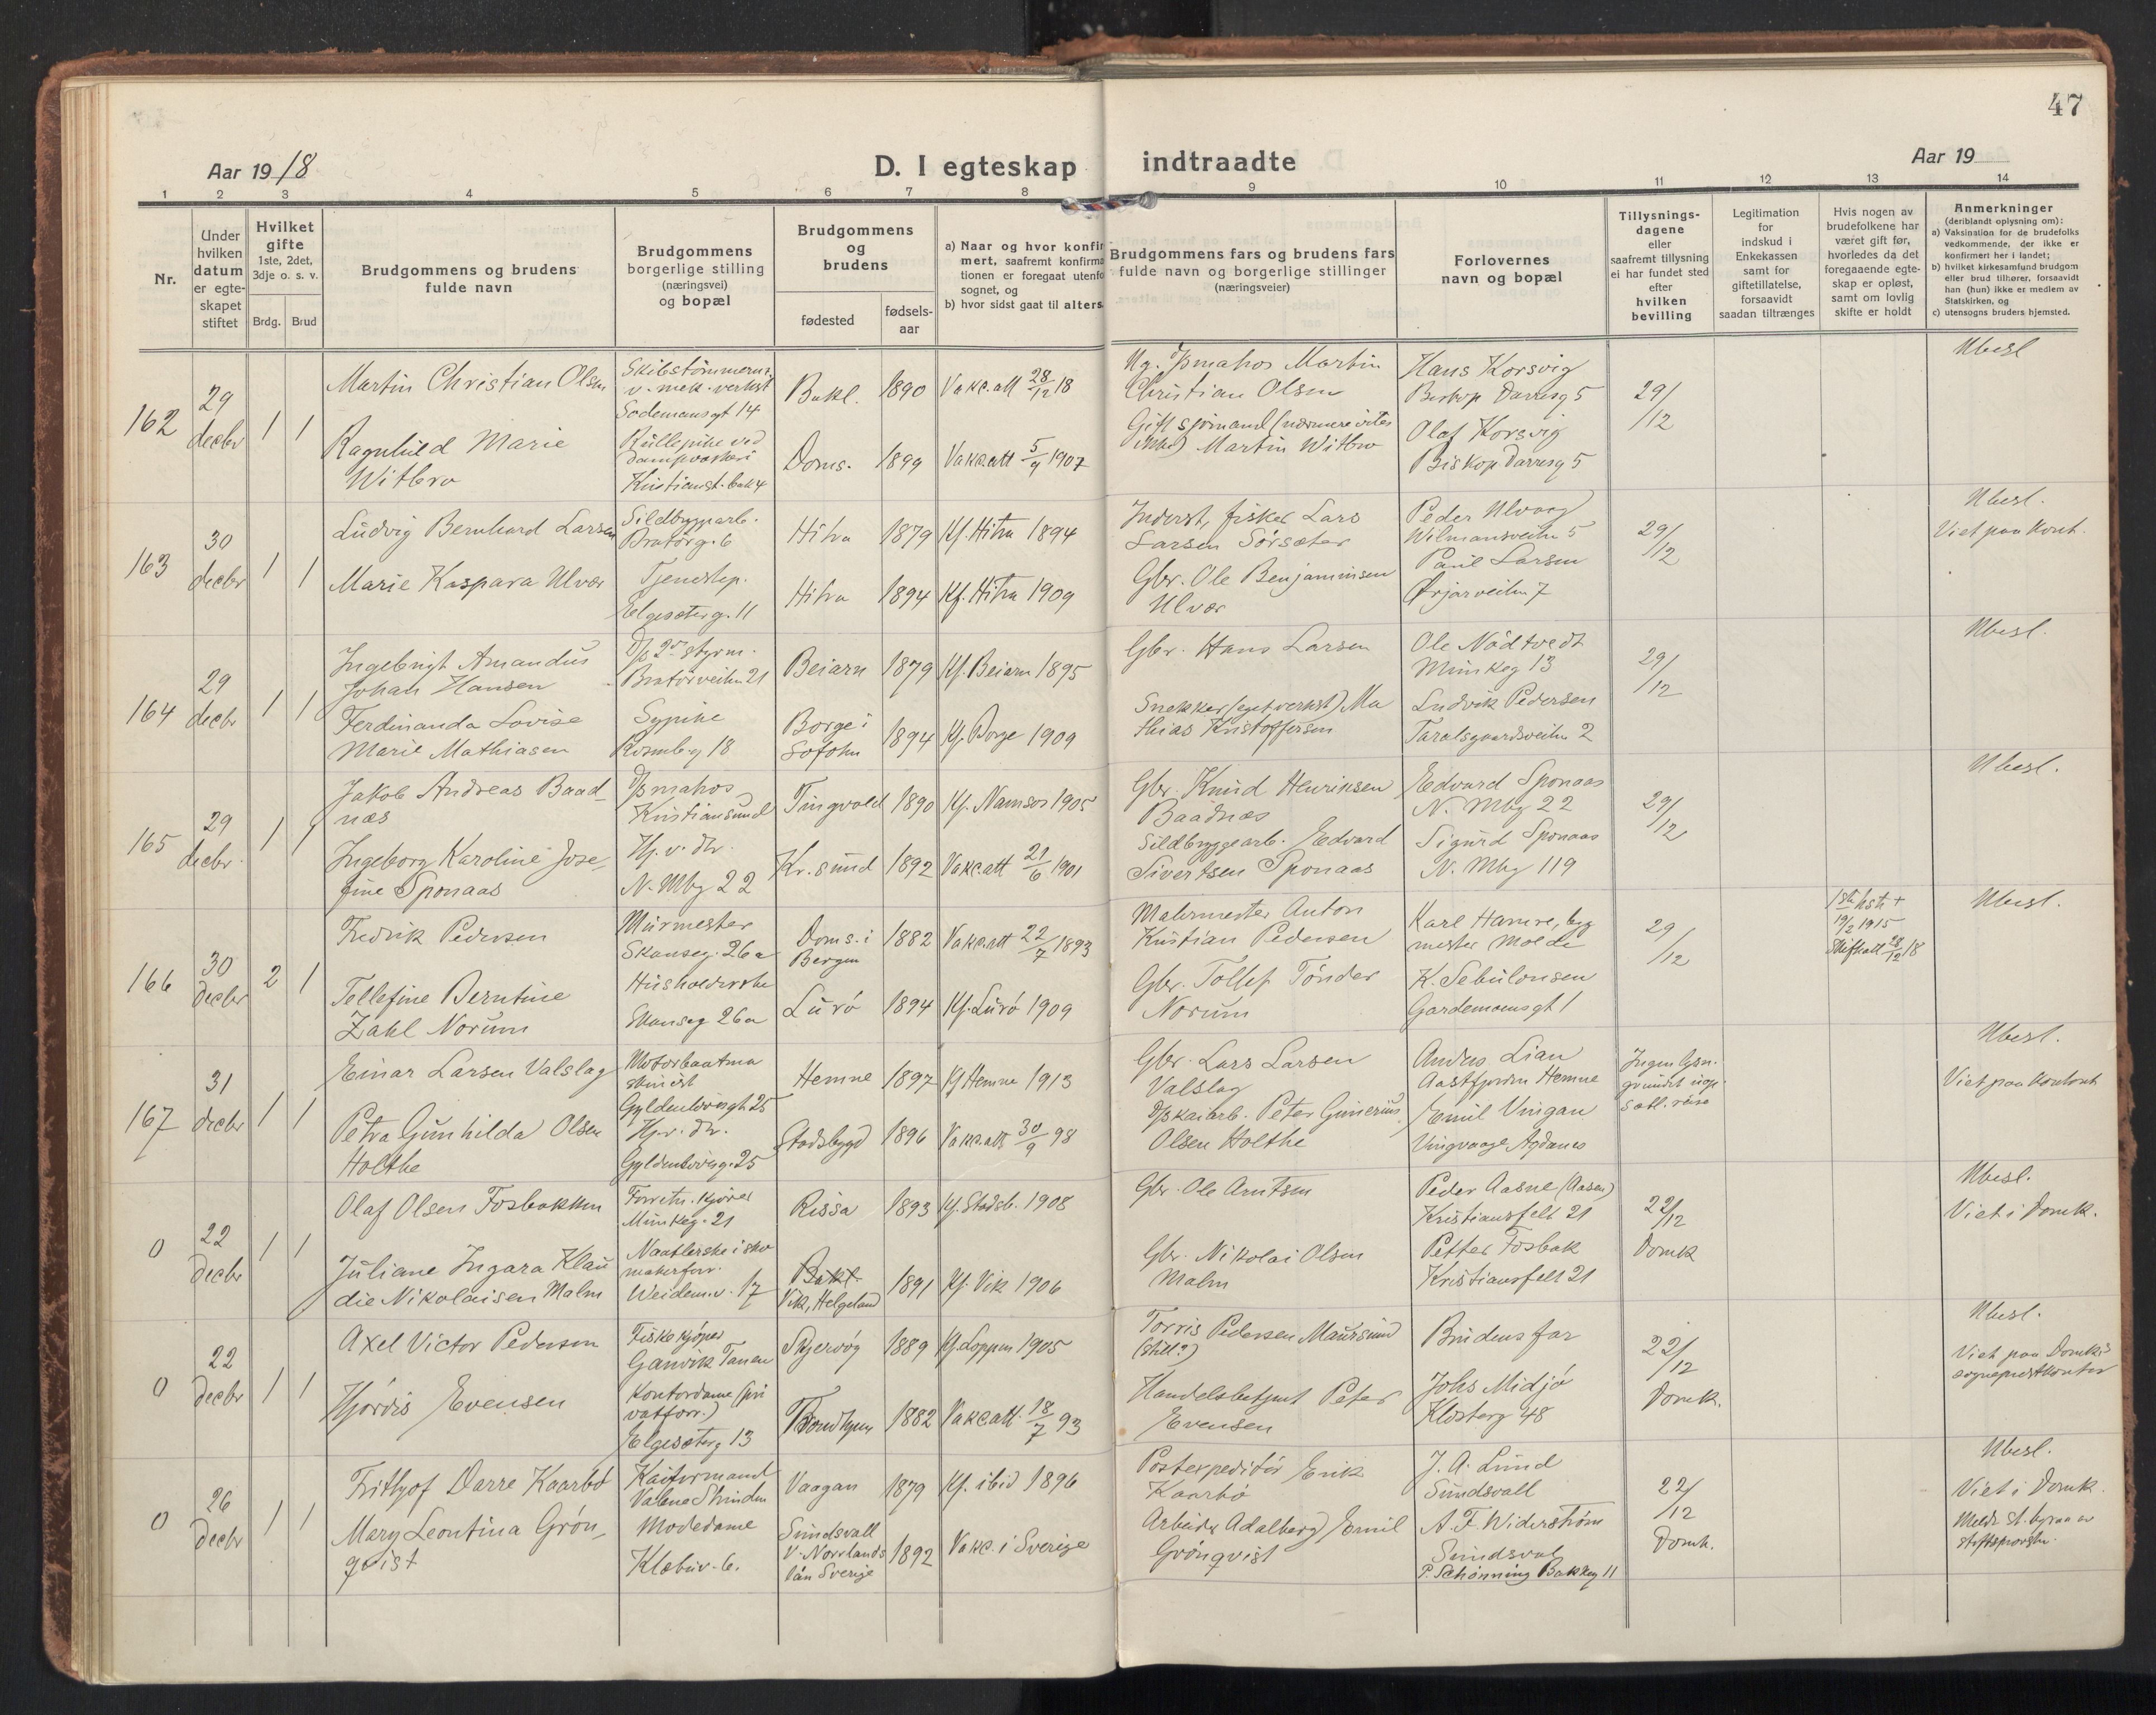 47
Aar 19 18
D. I egteskap indtraadte
Aar 19
1 2 3 4 5 6 7 8 9 10 11 12 13 14
Nr.
Under
hvilken
datum
er egte-
skapet
stiftet
Hvilket
gifte
1ste, 2det,
3dje o. s. v.
Brdg. Brud
Brudgommens og brudens
fulde navn
Brudgommens
borgerlige stilling
(næringsvei)
og bopæl
Brudgommens
og
brudens
fødested
fødsels-
aar
a) Naar og hvor konfir
mert, saafremt konfirma
tionen er foregaat utenfo
sognet, og
b) hvor sidst gaat til alters
Brudgommens fars og brudens fars
fulde navn og borgerlige stillinger
(næringsveier)
Forlovernes
navn og bopæl
Tillysnings-
dagene
eller
saafremt tillysning
ei har fundet sted
efter
hvilken
bevilling
Legitimation
for
indskud i
Enkekassen
samt for
giftetillatelse,
forsaavidt
saadan tiltrænges
Hvis nogen av
brudefolkene har
været gift før,
hvorledes da det
foregaaende egte-
skap er opløst,
samt om lovlig
skifte er holdt
Anmerkninger
(deriblandt oplysning om):
a) Vaksination for de brudefolks
vedkommende, der ikke er
konfirmert her i landet;
b) hvilket kirkesamfund brudgom
eller brud tilhører, forsaavidt
han (hun) ikke er medlem av
Statskirken, og
c) utensogns bruders hjemsted.
162
29
decbr
1 1
Martin Christian Olsen
v. mek. verkst
Sodemansgt 14
Bakl.
1890
Vakc.att 28/12 18
Martin
Christian Olsen
Hans Korsvig
Biskop Darresg 5
29/12
Ubesl
Ragnhild Marie
Witbro
Rullepike ved
dampvaskeri
Doms.
1899
Vakc.att 5/9 1907
Martin Witbro
Olaf Korsvig
Biskop Darresg 5
163
30
decbr
1 1
Ludvig Bernhard Larsen
Sildbryggarb.
Bratörg. 6
Hitra
1879
Kf. Hitra 1894
Inderst, fisker Lars
Larsen Sörsæter
Peder Ulvaag
Wilmansveiten 5
29/12
Ubesl.
Viet paa kont.
Marie Kaspara Ulvær
Tjenestep.
Elgesæterg. 11
Hitra
1894
Kf. Hitra 1909
Gbr. Ole Benjaminsen
Ulvær
Paul Larsen
Ørjarveiten 7
164
29
decbr
1 1
Ingebrigt Amandus
Johan Hansen
D/p 2den styrm.
Bratörveiten 21
Beiarn
1879
Kf. Beiarn 1895
Gbr. Hans Larsen
Ole Nödtvedt
Munkeg 13
29/12
Ubesl.
Ferdinanda Lovise
Marie Mathiasen
Sypike
Rosenb.g 18
Borge i
Lofoten
1894
Kf. Borge 1909
Snekker (eget verkst) Ma
thias Kristoffersen
Ludvik Pedersen
Taraldsgaardsveiten 2
165
29
decbr.
1 1
Jakob Andreas Baad-
næs
D/p matros
Kristiansund
Tingvold
1890
Kf. Namsos 1905
Gbr. Knud Henriksen
Baadnæs
Edvard Sponaas
N. Mbg 22
29/12
Ubesl.
Ingeborg Karoline Jose-
fine Sponaas
Hj. v. dr.
N. Mbg 22
Kr. sund
1892
Vakc.att 21/6 1901
Sildbryggearb. Edvard
Sivertsen Sponaas
Sigurd Sponaas
N. Mbg 119
166
30
decbr
2 1
Fredrik Pedersen
Murmester
Skanseg. 26a
Doms. i
Bergen
1882
Vakc.att 22/7 1893
Malermester Anton
Kristian Pedersen
Karl Hamre, byg
mester Molde
29/12
1ste hstr +
19/2 1915
Skifteatt 28/12 18
Ubesl.
Tellefine Berntine
Zahl Norum
Husholderske
Skanseg 26a
Lurö
1894
Kf. Lurö 1909
Gbr. Tollef Tönder
Norum
K. Sebulonsen
Gardemoensgt 1
167
31
decbr
1 1
Einar Larsen Valslag
Motorbaatma
skinist
Gyldenlövesgt 25
Hemne
1897
Kf Hemne 1913
Gbr. Lars Larsen
Valslag
Anders Lian
Aastfjorden Hemne
Ingen lysn.
Ubesl.
Viet paa kontoret
Petra Gunhilda Olsen
Holthe
Hj. v. dr.
Gyldenlövesg. 25
Stadsbygd
1896
Vakc.att 30/9 98
D/pskaiarb. Peter Gunerius
Olsen Holthe
Emil Vingan
Vingvaage Agdanes
0
22
decbr
1 1
Olaf Olsen Fosbakken
Forretn. kjörer
Munkeg. 21
Rissa
1893
Kf. Stadsb. 1908
Gbr. Ole Arntsen
Peder Aasne (Aasen)
Kristiansfelt 21
22/12
Domk
Ubesl.
Viet i Domk.
Juliane Ingara Klau
die Nikolaisen Malm
Naatlerske i sko
makerforr.
Weidem.v. 17
Bakl.
Vik, Helgeland
1891
Kf. Vik 1906
Gbr. Nikolai Olsen
Malm
Petter Fosbak
Kristiansfelt 21
0
22
decbr
1 1
Axel Victor Pedersen
Fiskekjöper
Ganvik Tanen
Skjervöy
1889
Kf. Loppen 1905
Torris Pedersen Maursund
(still?)
Brudens far
22/12
Domk.
Ubesl.
Viet paa Domk.s
sogneprestkontor
Hjördis Evensen
Kontordame (pri
vatforr.)
Elgesæterg 13
Trondhjem
1882
Vakc.att. 18/7 93
Handelsbetjent Peter
Evensen
Johs Midjo
Klosterg 48
0
26
decbr
1 1
Frithjof Darre Kaarbö
Kaiformand
Vaagan
1879
Kf. ibid 1896
Postexpeditör Erik
Kaarbö
J. A. Lund
Sundsvall
22/12
Domk.
Ubesl.
Viet i Domk.
Mary Leontina Grön-
qvist
Modedame
Klæbuv. 6.
Sundsvall
V. Norrlands
län Sverige
1892
Vakc. i Sverige
Arbeider Adalberg Emil
Grönqvist
A. F. Widerström
Sundsval
P. Schönning Bakkeg 11